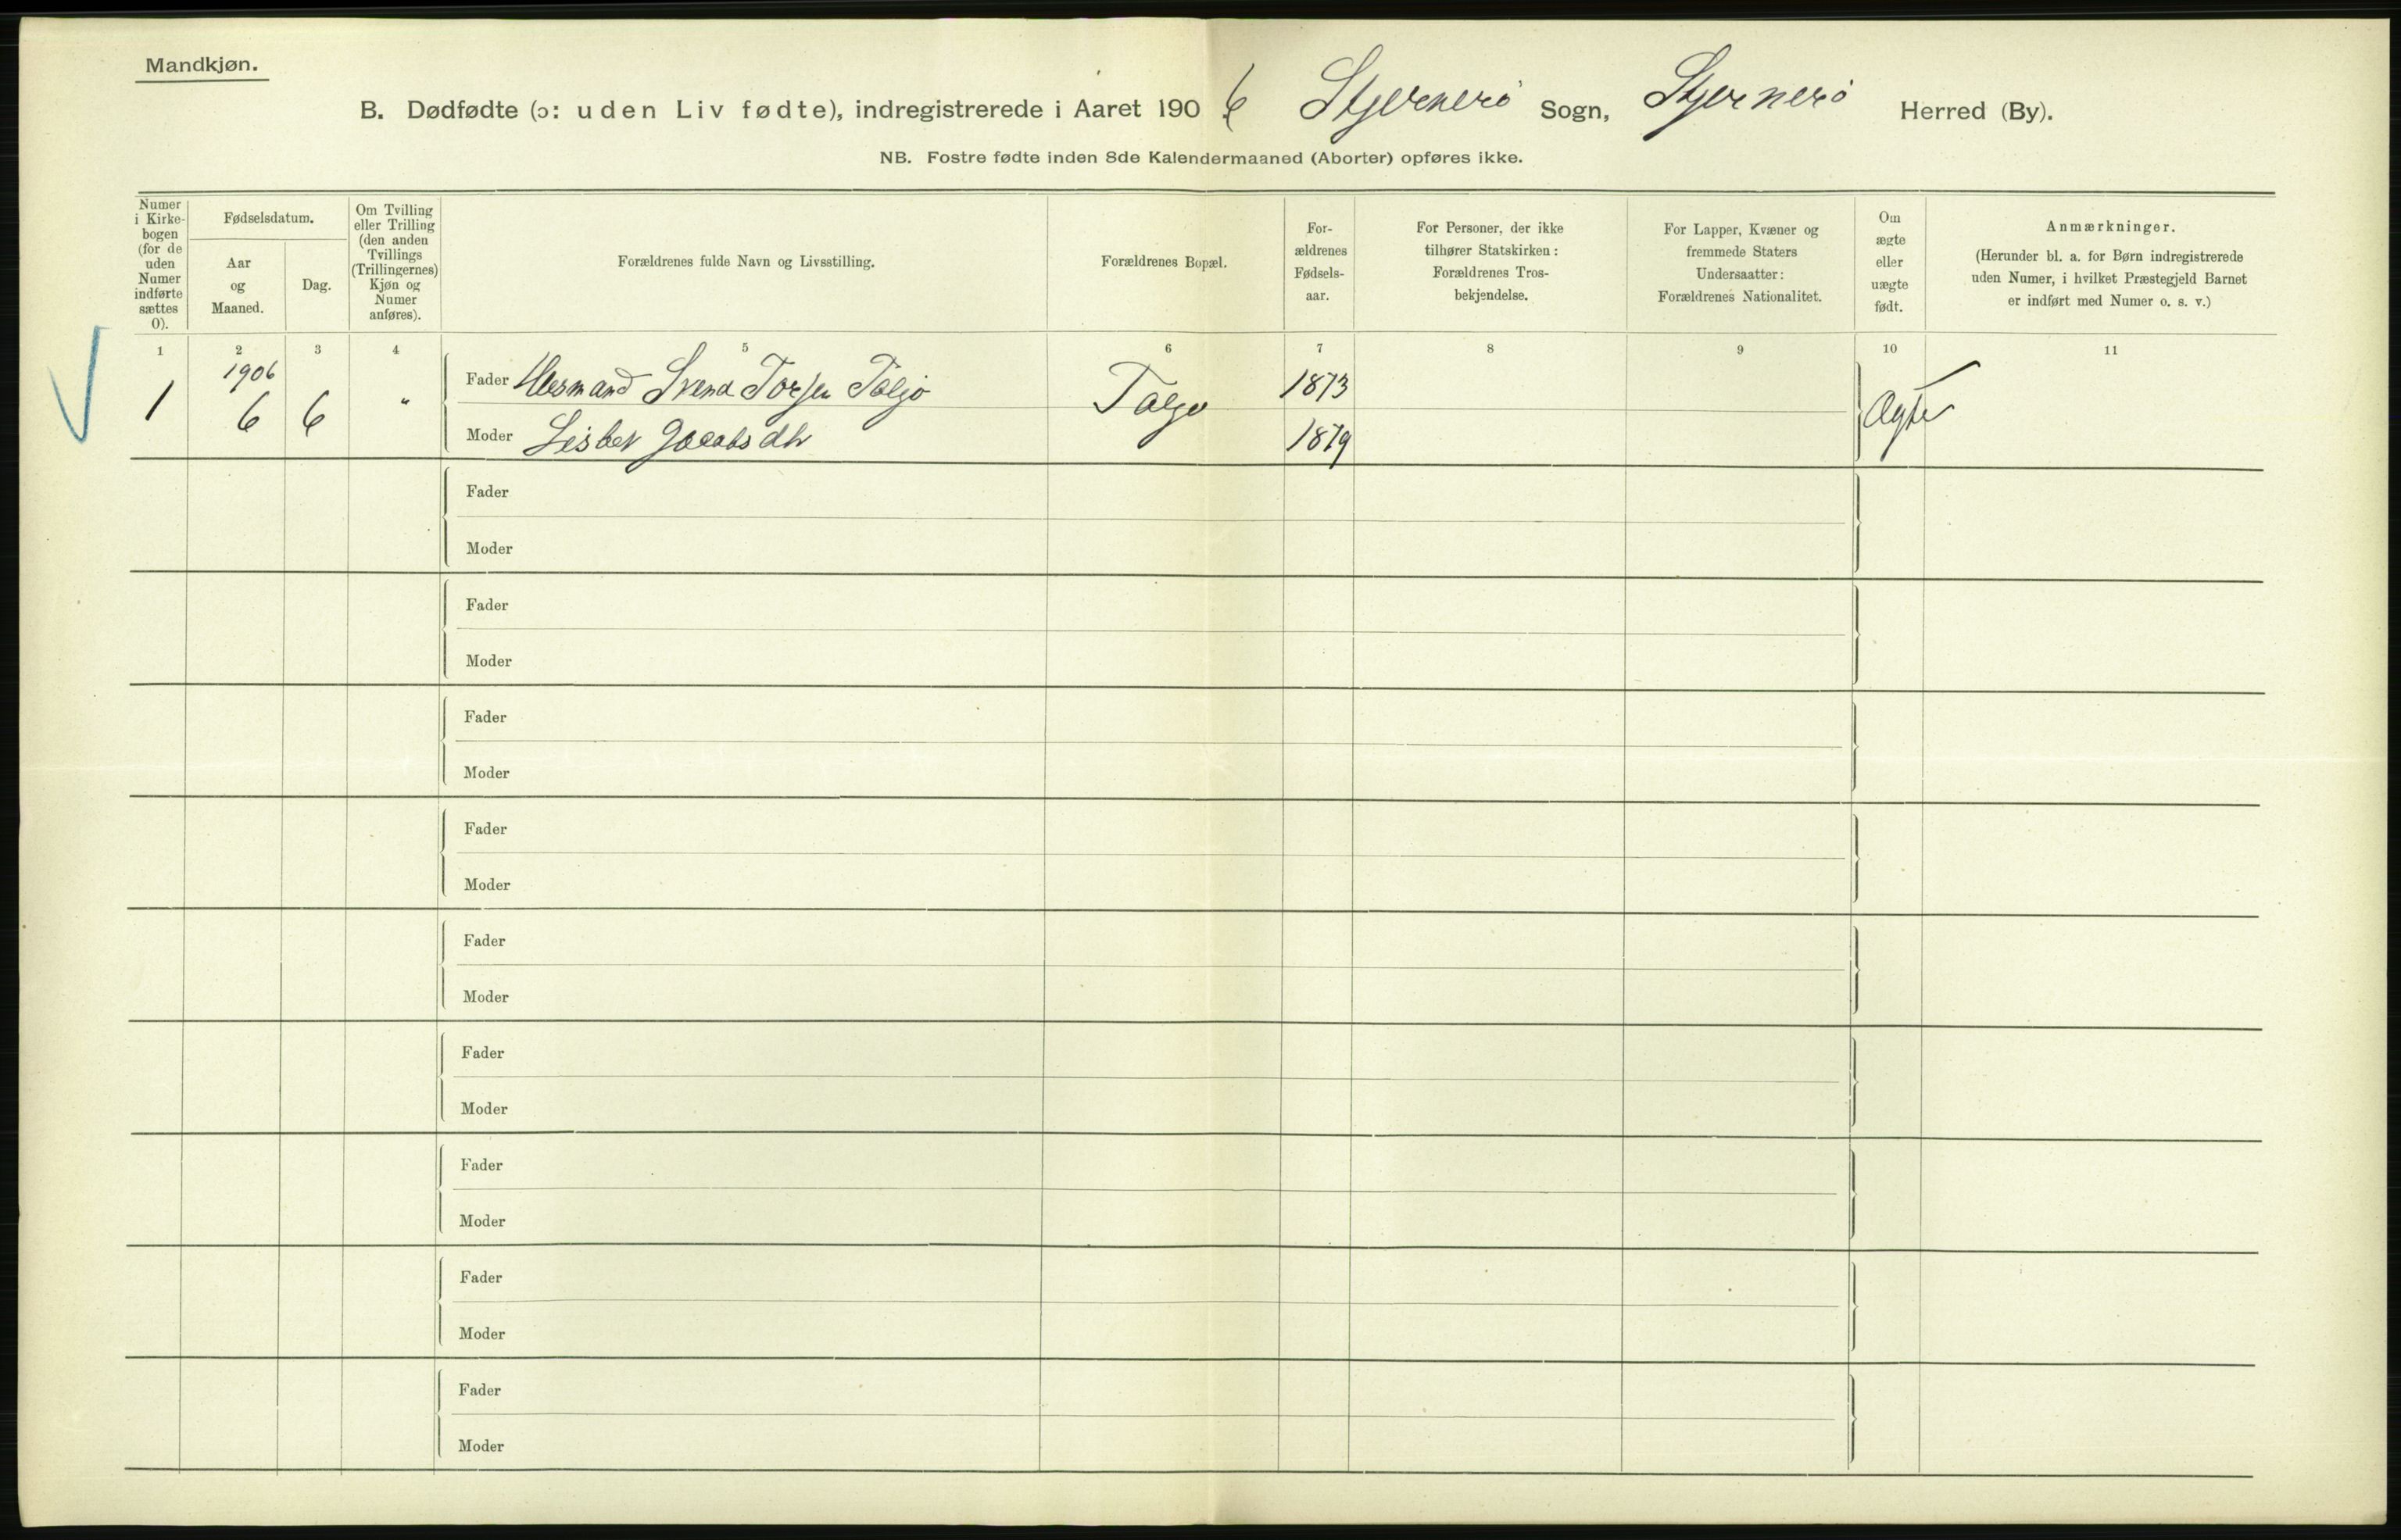 Mandkjøn.
B. Dødfødte (ɔ: uden Liv fødte), indregistrerede i Aaret 1906 Stjernerö Sogn, Stjernerö Herred (By).
NB. Fostre fødte inden 8de Kalendermaaned (Aborter) opføres ikke.
Numer
i Kirke-
bogen
(for de
uden
Numer
indførte
sættes
0).
Fødselsdatum.
Aar
og
Maaned.
Dag.
Om Tvilling
eller Trilling
(den anden
Tvillings
(Trillingernes)
Kjøn og
Numer
anføres).
Forældrenes fulde Navn og Livsstilling.
Forældrenes Bopæl.
For-
ældrenes
Fødsels-
aar.
For Personer, der ikke
tilhører Statskirken:
Forældrenes Tros-
bekjendelse.
For Lapper, Kvæner og
fremmede Staters
Undersaatter:
Forældrenes Nationalitet.
Om
ægte
eller
uægte
født.
Anmærkninger.
(Herunder bl. a. for Børn indregistrerede
uden Numer, i hvilket Præstegjeld Barnet
er indført med Numer o. s. v.)
1 2 3 4 5 6 7 8 9 10 11
1906
1 6 6 "
Fader Husmand Svend Torsen Talgö
Talgö
1873
Ægte
Moder Lisbet Jacobsdtr
1879
Fader
Moder
Fader
Moder
Fader
Moder
Fader
Moder
Fader
Moder
Fader
Moder
Fader
Moder
Fader
Moder
Fader
Moder